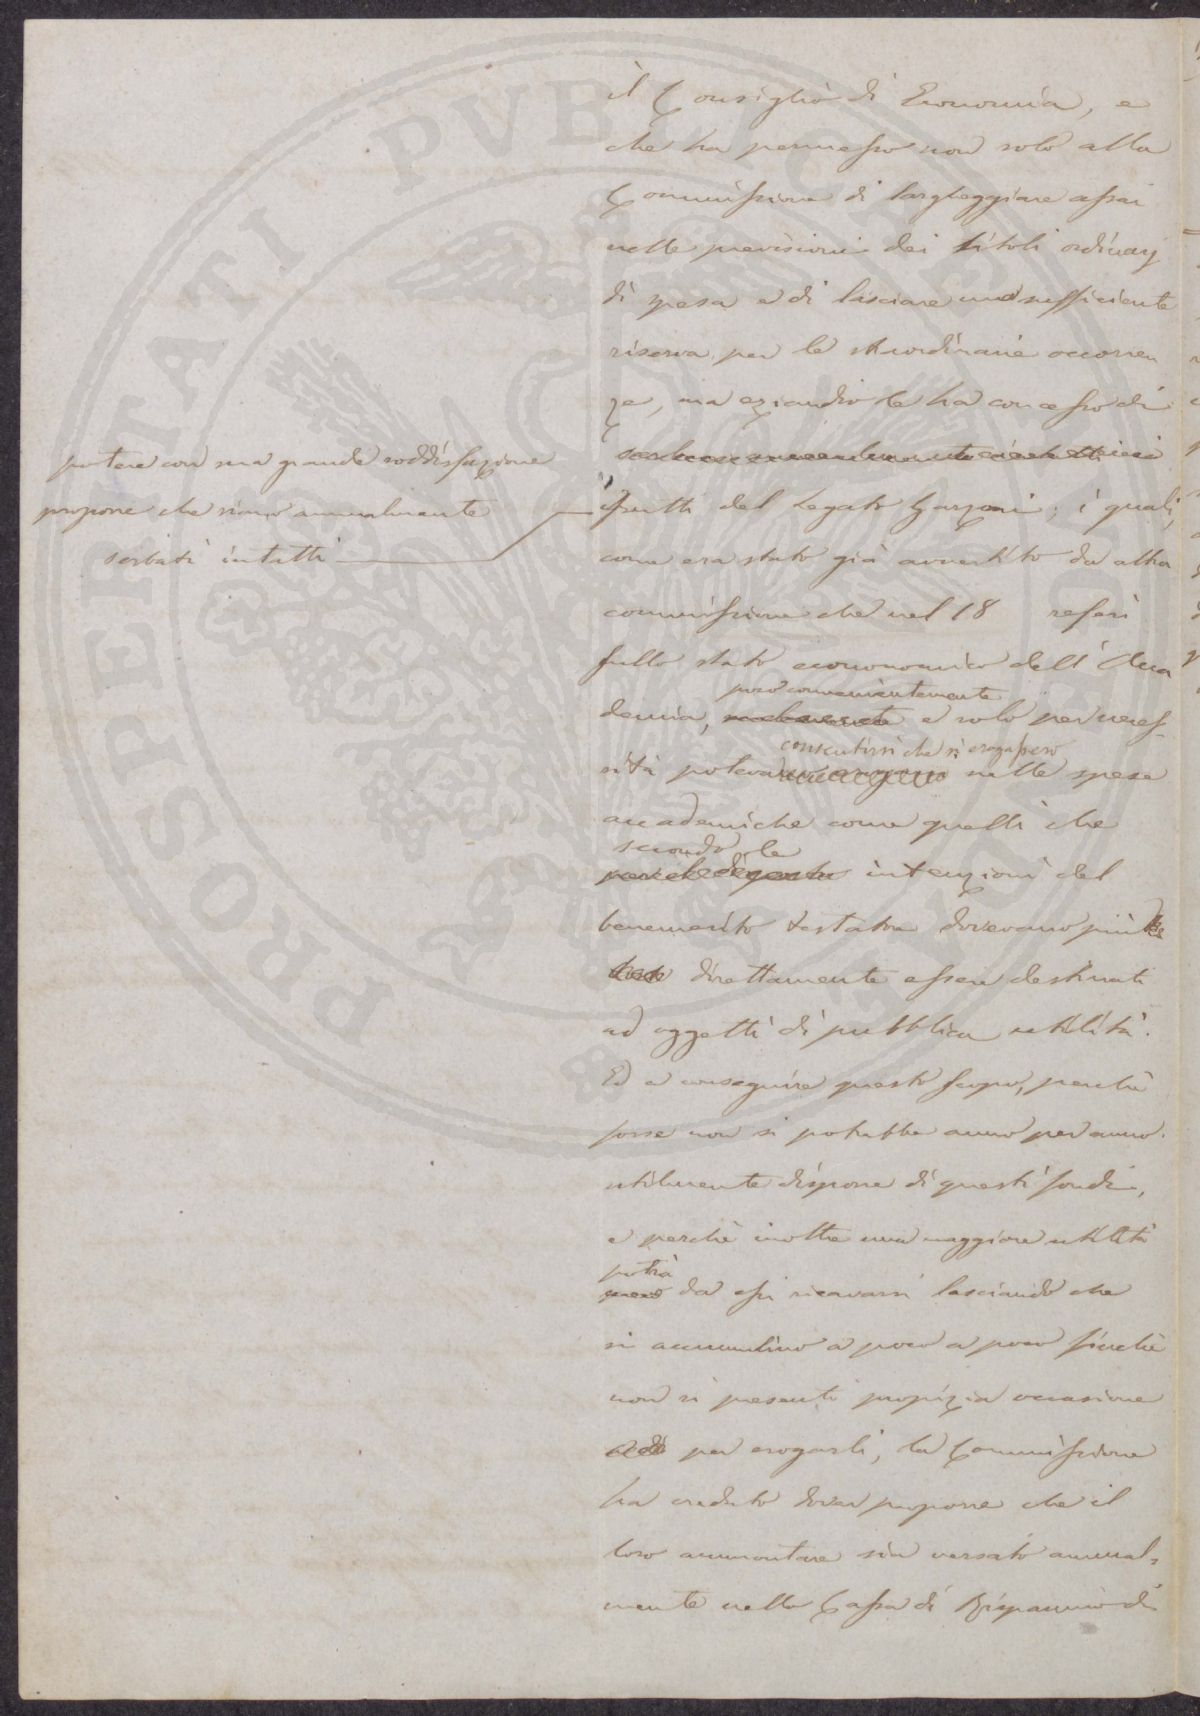 il Consiglio di Economia, e
che ha permesso non solo alla
Commissione di largheggiare assai
nelle previsioni dei titoli ordinarj
di spesa e di lasciare una sufficiente
riserva per le straordinarie occorren
ze, ma eziandio le ha concesso di
potere con sua grande soddisfazione
proporre che siano annualmente
serbati intatti
frutti del Legato Garzoni; i quali,
come era stato già avvertito da altra
commissione che nel 18 referì
sullo stato econonomico dell'Acca
demia, poco convenientemente e solo per neces-
sità poteva consentirsi che si erogassero nelle spese
accademiche come quelli che
secondo le intenzioni del
benemerito testatore dovevano più
direttamente essere destinati
ad oggetti di pubblica utilità.
Ed a conseguire questo scopo, perché
forse non si potrebbe anno per anno
utilmente disporre di questi fondi,
e perchè inoltre una maggiore utilità
potrà da essi ricavarsi lasciando che
si accumulino a poco a poco finchè
non si presenti propizia occasione
per erogarli, la Commissione
ha creduto dover proporre che il
loro ammontare sia versato annual=
mente nella Cassa di Risparmio di